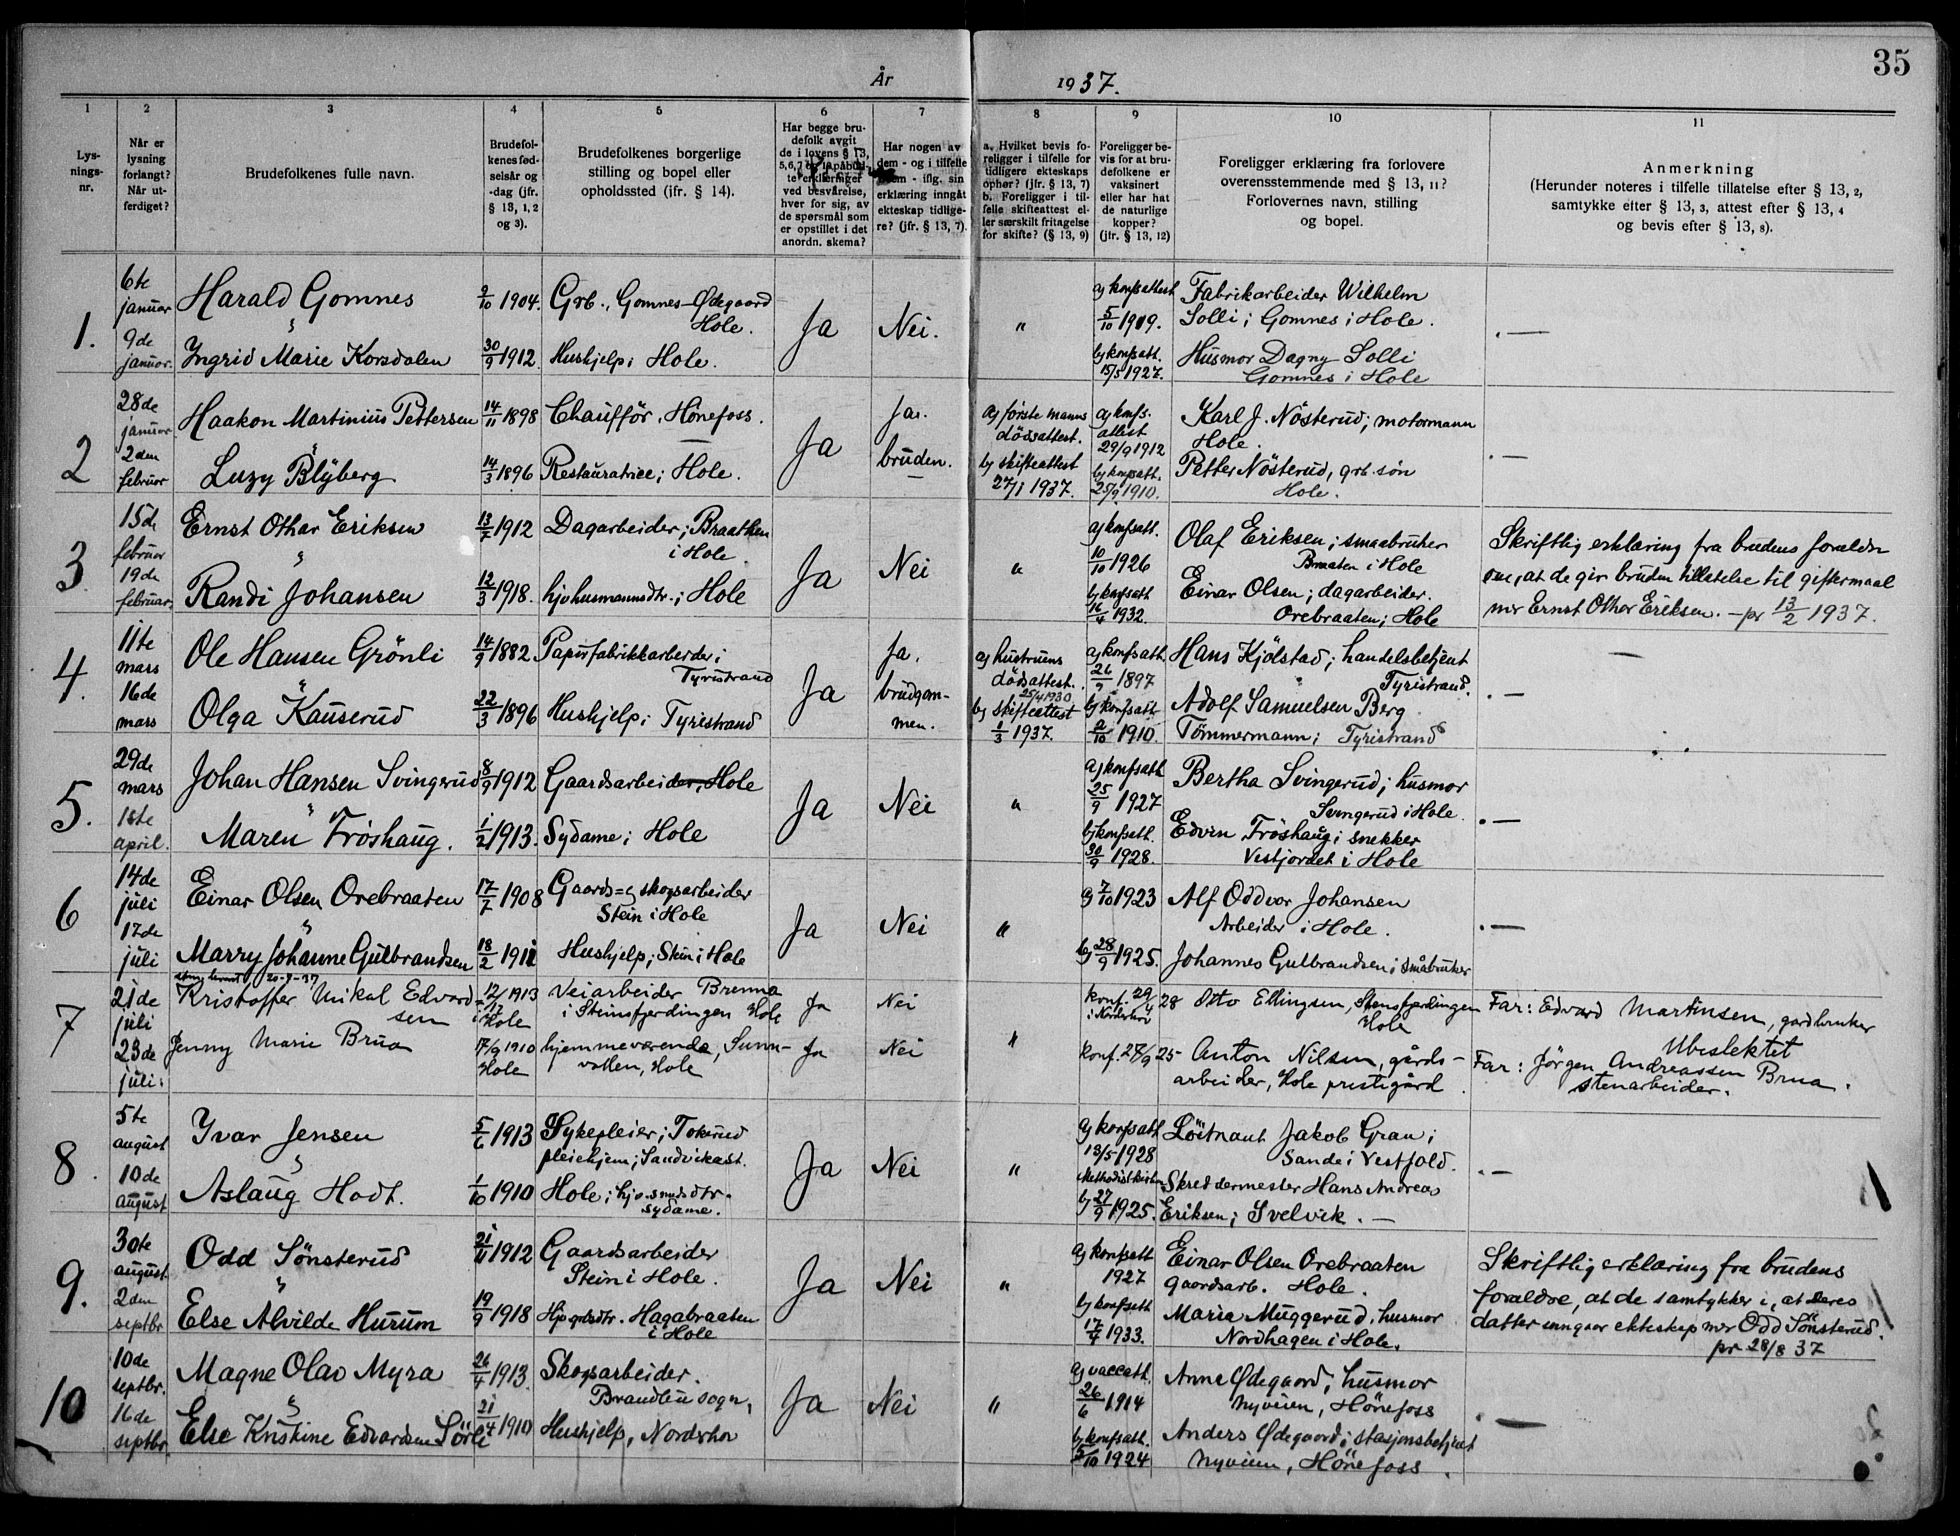 35
År 1937.
1
2
3
4
5
6
7
8
9
10
11
Lys-
nings-
nr.
Når er
lysning
forlangt?
Når ut-
ferdiget?
Brudefolkenes fulle navn.
Brudefol-
kenes fød-
selsår og
-dag (jfr.
§ 13, 1, 2
og 3).
Brudefolkenes borgerlige
stilling og bopel eller
opholdssted (ifr. § 14).
Har begge bru-
defolk avgit
de i lovens § 13,
5,6,7
te erklæringer
ved besvarelse,
hver for sig, av
de spørsmål som
er opstillet i det
anordn. skema?
Har nogen av
dem - og i tilfelle
hvem - iflg. sin
erklæring inngått
ekteskap tidlige-
re? (jfr. § 13, 7).
a. Hvilket bevis fo-
religger i tilfelle for
tidligere ekteskaps
ophør? (jfr. § 13, 7)
b. Foreligger i til-
felle skifteattest el-
ler særskilt fritagelse
for skifte? (§ 13, 9)
Foreligger be-
vis for at bru-
defolkene er
vaksinert
eller har hat
de naturlige
kopper?
(jfr. § 13, 12)
Foreligger erklæring fra forlovere
overensstemmende med § 13, 11?
Forlovernes navn, stilling
og bopel.
Anmerkning
(Herunder noteres i tilfelle tillatelse efter § 13, 2,
samtykke efter § 13, 3, attest efter § 13, 4
og bevis efter § 13, 8).
1.
6te
januar
9de
januar.
Harald Gomnes
"
Ingrid Marie Korsdalen
9/10 1904.
30/9 1912.
Grb., Gomnes-Ødegaard
Hole.
Hushjelp; Hole.
Ja
Nei.
"
a) konfsattest
5/10 1919.
b) konfsatt.
15/5 1927.
Fabrikarbeider Wilhelm
Solli; Gomnes i Hole.
Husmor Dagny Solli
Gomnes i Hole
. —
2
28de
januar
2den
februar
Haakon Martinius Pettersen
Luzy Blyberg
14/11 1898
14/3 1896
Chauffør, Hønefoss.
Restauratrice; Hole.
Ja
Ja.
bruden.
—
a) første manns
dødsattest.
b) skifteattest
27/1 1937.
a) konfs.
attest
29/9 1912
b) konfsatt.
25/9 1910.
Karl J. Nösterud; motormann
Hole.
Petter Nösterud, grb. søn
Hole.
. —
3.
15de
februar
19de
februar.
Ernst Othar Eriksen
"
Randi Johansen
13/2 1912
12/3 1918.
Dagarbeider; Braathen
i Hole
hjv husmannsdtr.; Hole
Ja
Nei
"
a) konfsatt.
10/10 1926
b) konfsatt
16/4 1932.
Olaf Eriksen; smaabruker
Braaten i Hole
Einar Olsen; dagarbeider.
Orebraaten; Hole
Skriftlig erklæring fra brudens foreldre
om, at de gir bruden tilletelse til giftermaal
med Ernst Othar Eriksen. — pr 13/2 1937.
4.
11te
mars
16de
mars
Ole Hansen Grönli
"
Olga Kauserud
14/9 1882
22/3 1896
Papirfabrikkarbeider;
Tyristrand
Hushjelp; Tyristrand
Ja
Ja.
brudgom-
men.
a) hustruens
dødsattest.
25/4 1930
b) skifteattest
1/3 1937.
a) konfsatt
26/9 1897
b) konfsatt.
2/10 1910.
Hans Kjölstad; handelsbetjent
Tyristrand.
Adolf Samuelsen Berg
Tömmermann; Tyristrand
. —
5.
29de
mars
1ste
april.
Johan Hansen Svingerud
"
Maren Fröshaug.
8/9 1912
1/2 1913.
Gaardsarbeider, Hole
Sydame; Hole
Ja
Nei
"
a) konfsatt
25/9 1927
b) konfsatt.
30/9 1928.
Bertha Svingerud; husmor
Svingerud i Hole.
Edvin Fröshaug; snekker
Vestjordet i Hole
. —
6
14de
juli
17de
juli
Einar Olsen Orebraaten
"
Marry Johanne Gulbrandsen
17/7 1908
18/2 1911
Gaards- og skogsarbeider
Stein i Hole
Hushjelp; Stein i Hole
Ja
Nei
"
a) 7/10 1923
b) 28/9 1925.
Alf Oddvar Johansen
Arbeider i Hole.
Johannes Gulbrandsen; småbruker
. —
7
21de
juli
23de
juli.
Kristoffer Mikal Edvard-
sen
Jenny Marie Brua
12/12 1913
i Hole
17/9 1910
Hole
Veiarbeider Brenna
i Steinsfjerdingen Hole
hjemmeværende, Sunn-
vollen, Hole
Ja
Ja
Nei
Nei
"
konf. 29/4 28
i Norderhov
Konf. 27/9 25
Otto Ellingsen, Stensfjerdingen
Hole
Anton Nilsen, gårds-
arbeider, Hole prestegård
Far: Edvard Martinsen, gardbruker
Ubeslektet
Far: Jörgen Andreassen Brua.
stenarbeider.
8.
5te
august
10de
august
Ivar Jensen
"
Aslaug Hodt.
5/6 1913
1/10 1910
Sykepleier; Tokerud
pleiehjem; Sandvikast.
Hole; hjv. smedsdtr.
sydame.
Ja
Nei
"
a) konfsatt
13/5 1928
Methodistkirken
b) 27/9 1925.
Löitnant Jakob Gran;
Sande i Vestfold.
Skreddermester Hans Andreas
Eriksen; Svelvik. —
. —
9.
30te
august
2den
septbr
Odd Sönsterud
"
Else Alvilde Hurum
21/11 1912
19/9 1918
Gaardsarbeider
Stein i Hole.
Hjv grbdtr. Hagabraaten
i Hole
Ja
Nei
"
a) konfsatt
1927
b) konfsatt
17/4 1933.
Einar Olsen Orebraaten
gaardsarb. Hole.
Maria Muggerud, husmor
Nordhagen i Hole.
Skriftlig erklæring fra brudens
foreldre, at de samtykker i, at deres
datter inngaar ekteskap med Odd Sönsterud.
pr 28/8 37
10
10de
septbr.
16de
septbr
Magne Olav Myra
"
Else Kristine Edvardsen Sörli
26/4 1913.
21/4 1910
Skogsarbeider.
Brandbu sogn,
Hushjelp, Norderhov
Ja
Nei
"
a) vaccatt.
26/6 1914
b) konfsatt.
5/10 1924
Anne Ødegaard; husmor
Nyveien, Hönefoss
Anders Ødegaard; stasjonsbetjent
Nyveien, Hönefoss.
. —